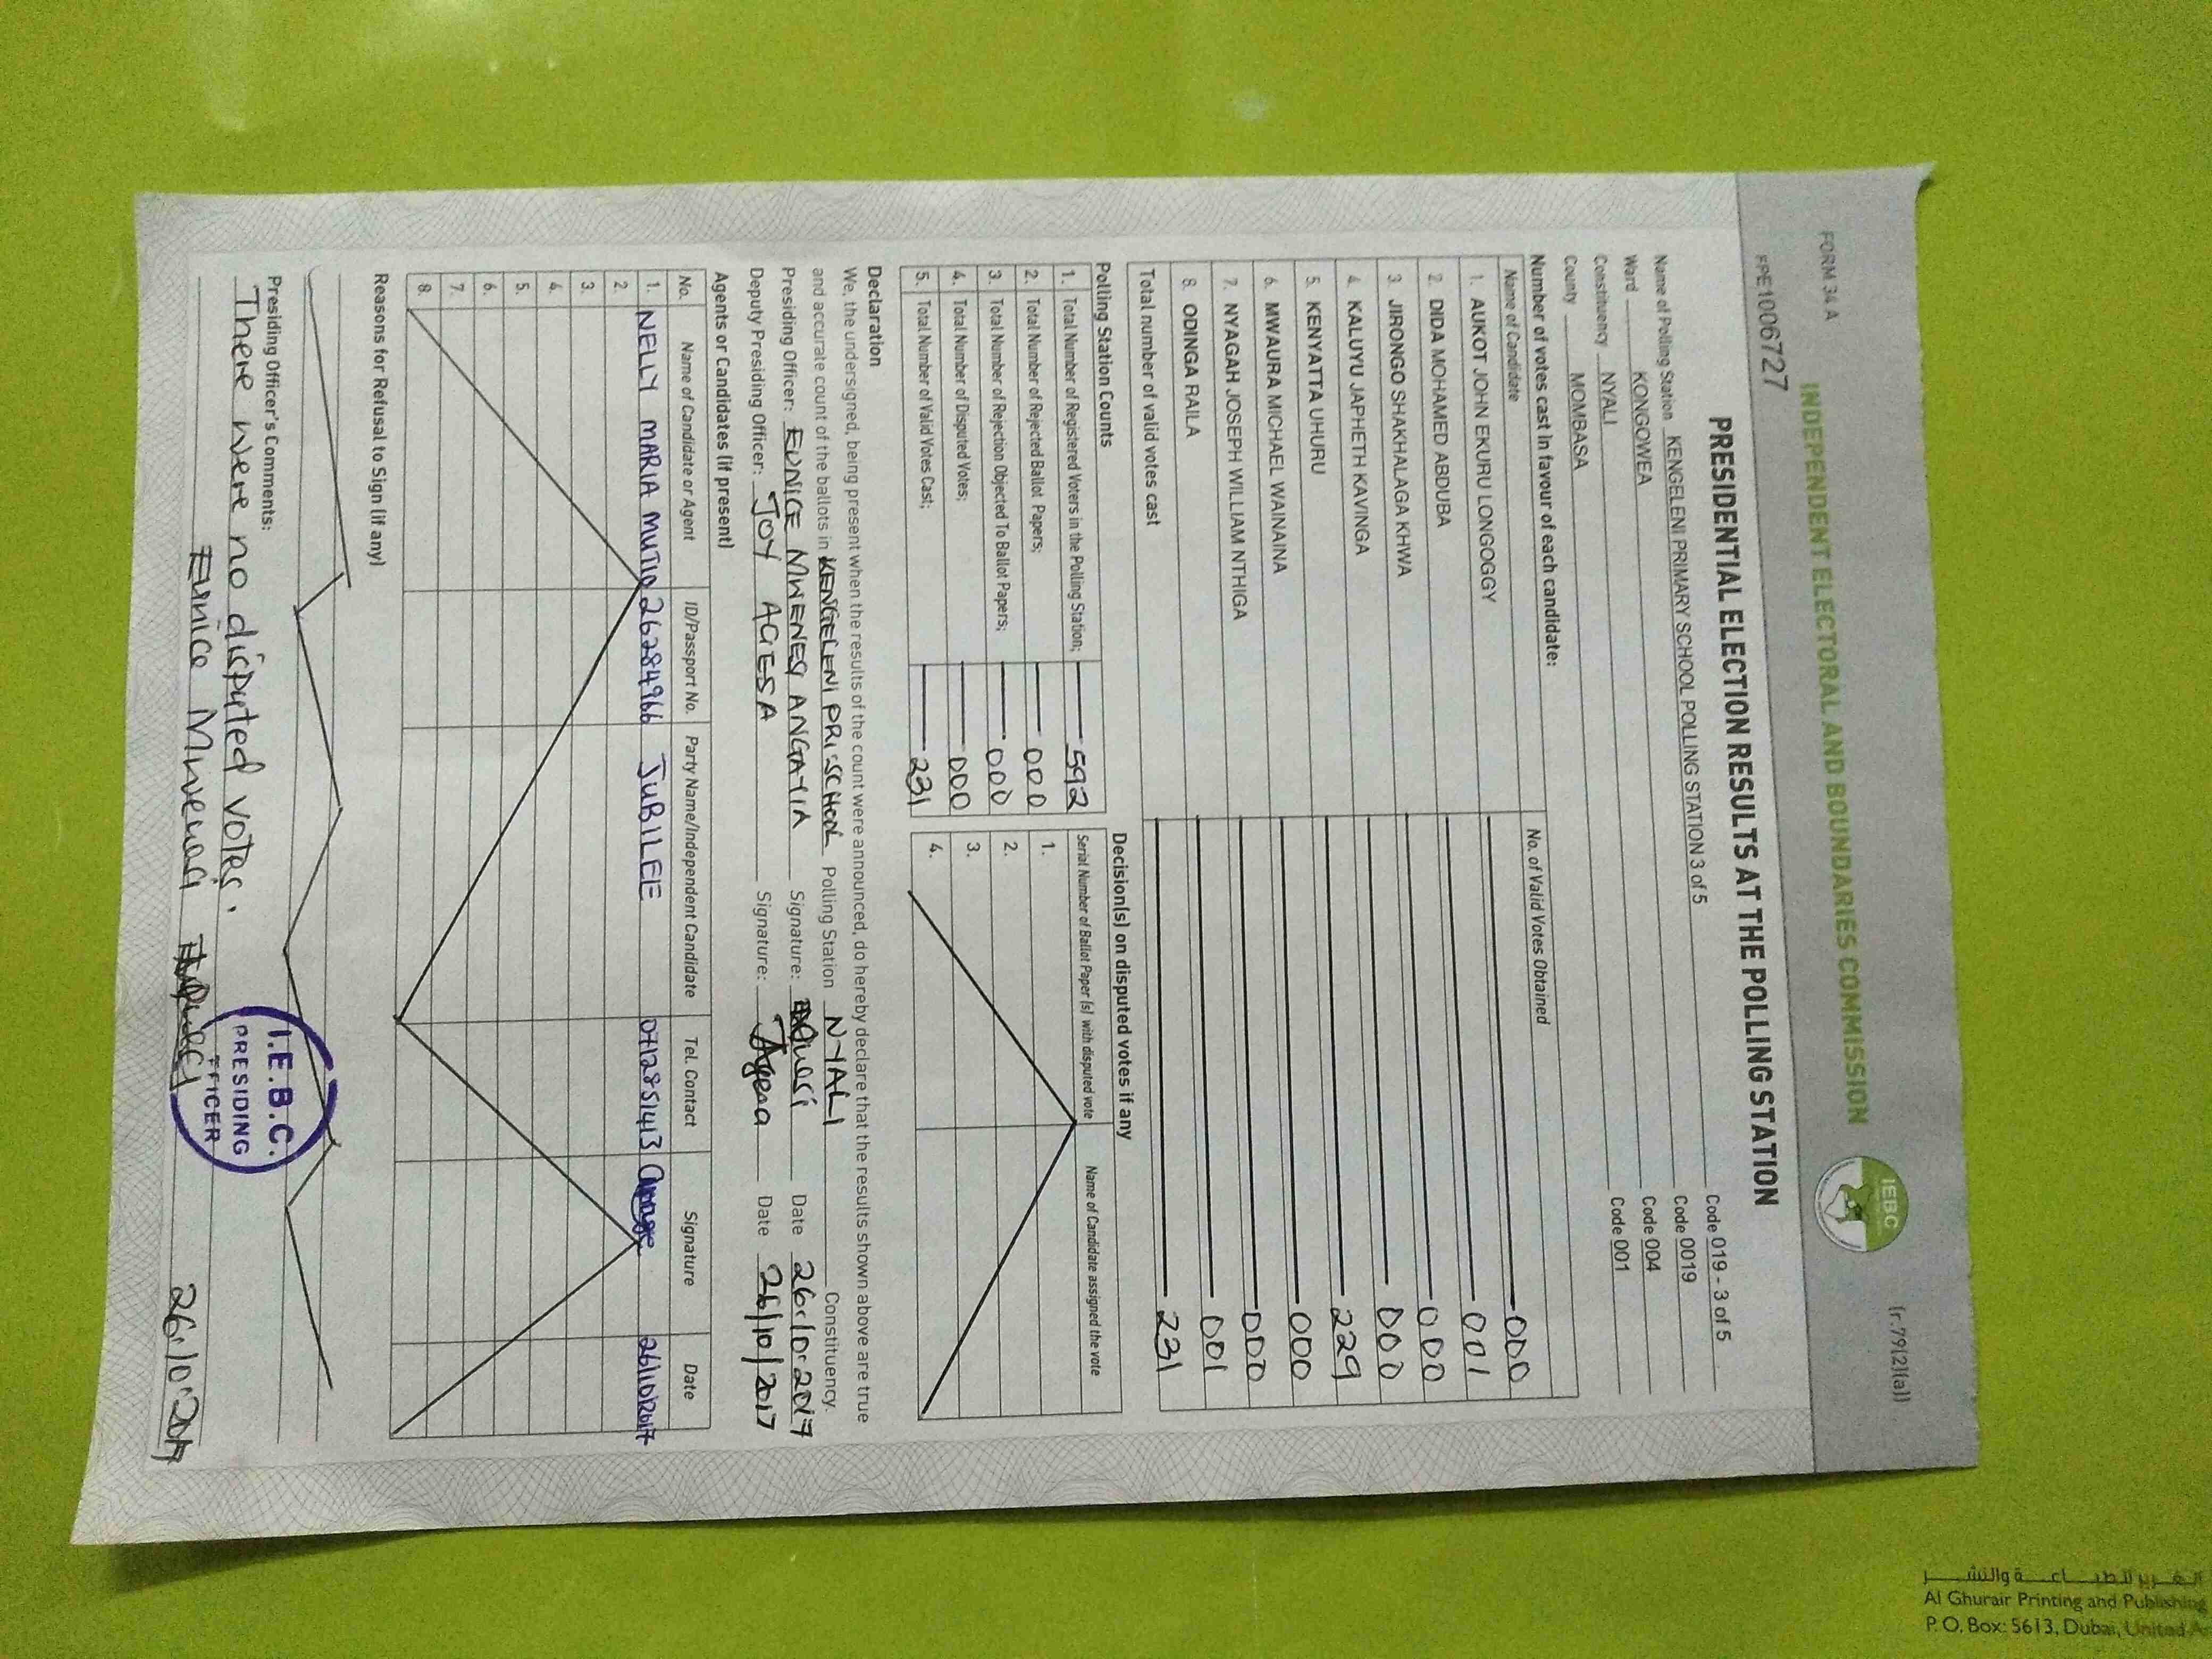 FORM 34 A
(r.79(2)(a))
INDEPENDENT ELECTORAL AND BOUNDARIES COMMISSION
IEBC
FPE1006727
PRESIDENTIAL ELECTION RESULTS AT THE POLLING STATION
Name of Polling Station KENGELENI PRIMARY SCHOOL POLLING STATION 3 of 5 Code 019 - 3 of 5
Ward KONGOWEA Code 0019
Constituency NYALI Code 004
County MOMBASA Code 001
Number of votes cast in favour of each candidate:
Name of Candidate No. of Valid Votes Obtained
1. AUKOT JOHN EKURU LONGOGGY 000
2. DIDA MOHAMED ABDUBA 001
3. JIRONGO SHAKHALAGA KHWA 000
4. KALUYU JAPHETH KAVINGA 000
5. KENYATTA UHURU 229
6. MWAURA MICHAEL WAINAINA 000
7. NYAGAH JOSEPH WILLIAM NTHIGA 000
8. ODINGA RAILA 001
Total number of valid votes cast 231
Polling Station Counts
1. Total Number of Registered Voters in the Polling Station; 592
2. Total Number of Rejected Ballot Papers; 000
3. Total Number of Rejection Objected To Ballot Papers; 000
4. Total Number of Disputed Votes; 000
5. Total Number of Valid Votes Cast; 231
Decision(s) on disputed votes if any
Serial Number of Ballot Paper (s) with disputed vote Name of Candidate assigned the vote
1.
2.
3.
4.
Declaration
We, the undersigned, being present when the results of the count were announced, do hereby declare that the results shown above are true
and accurate count of the ballots in KENGELENI PRI SCHOOL Polling Station NYALI Constituency.
Presiding Officer: EUNICE MWENESI ANGATIA Signature: Date 26.10.2017
Deputy Presiding Officer: JOY AGESA Signature: JAgesa Date 26/10/2017
Agents or Candidates (if present)
No. Name of Candidate or Agent ID/Passport No. Party Name/Independent Candidate Tel. Contact Signature Date
1. NELLY MARIA MUTIO 26284966 JUBILEE 0712851413 26/10/2017
2.
3.
4.
5.
6.
7.
8.
Reasons for Refusal to Sign (if any)
Presiding Officer's Comments:
There were no disputed votes.
Eunice Mwenesi 26.10.2017
I.E.B.C.
PRESIDING
OFFICER
Al Ghurair Printing and Publishing
P. O. Box: 5613, Dubai, United